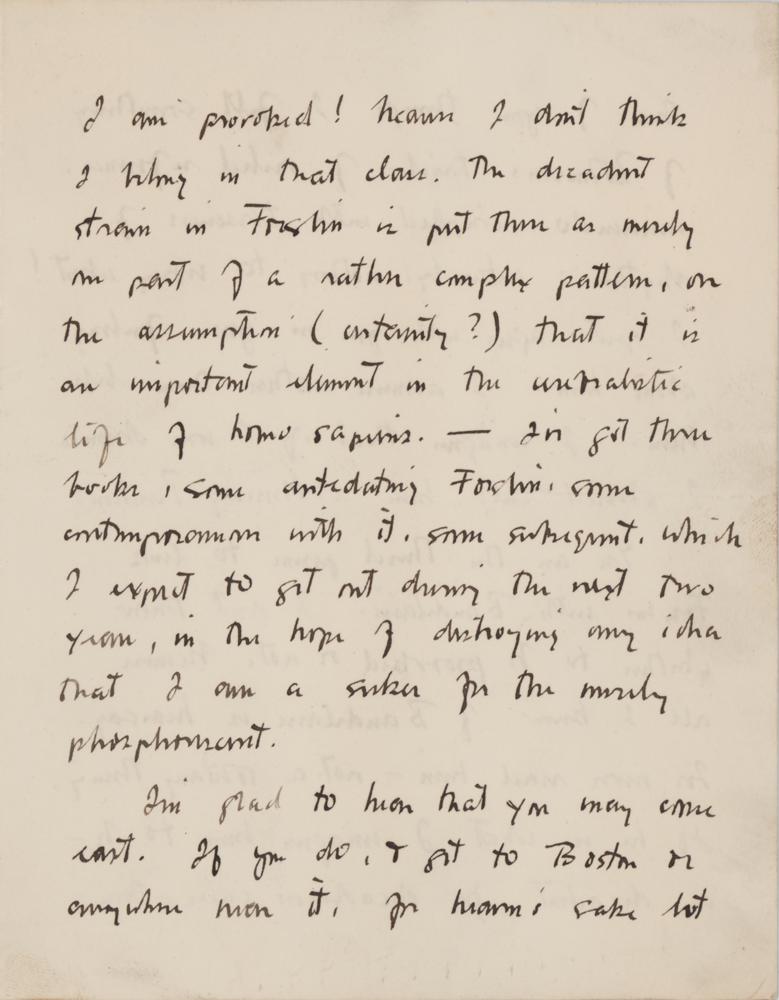 I am provoked! because I don't think
I belong in that class. The decadent
strain in Forslin is put there as merely
one part of a rather complex pattern, on
the assumption (certainty?) that it is
an important element in the cerebralistic
life of homo sapiens. — I've got three
books, some antedating Forslin, some
contemporaneous with it, some subsequent, which
I expect to get out during the next two
years, in the hope of destroying any idea
that I am a seeker for the merely
phosphorescent.
I'm glad to hear that you may come
east. If you do, & get to Boston or
anywhere near it, for heaven's sake let